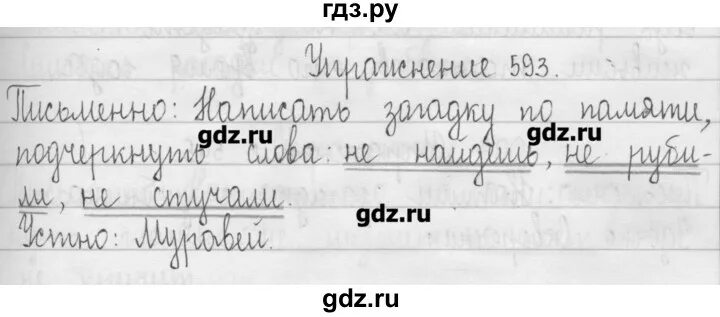 гдз.ру
Упражнение 593.
Письменно: Написать загадку по памяти,
gdz.ru
подчеркнуть слова: не найдёшь, не руби-
ли, не стучали.
gdz.ru
Устно: Муравей.
gdz.ru